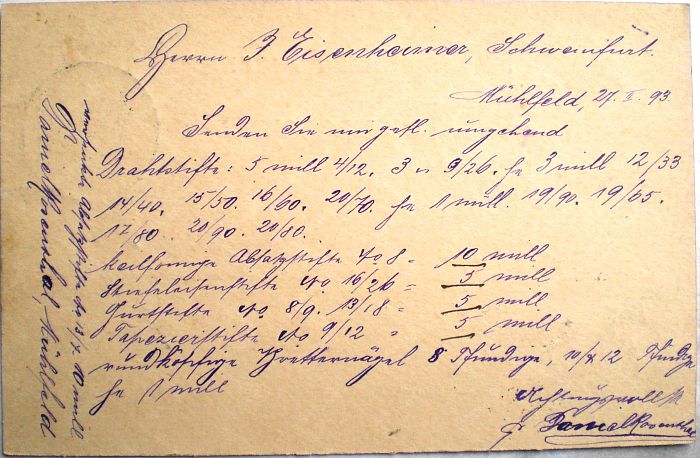 Herrn J. Eisenheimer, Schweinfurt.
Mühlfeld, 27. X. 93.
Senden Sie mir gefl. umgehend
Drahtstifte: 5 mill 4/12. 3 " 9/26. je 3 mill 12/33
14/40. 15/50. 16/60. 20/70. je 1 mill. 19/90. 19/65.
17/80. 20/90. 20/80.
keilförmige Absatzstifte No 8 = 10 mill
Stiefeleisenstifte No. 16/26 = 5 mill
Gurtstifte No 8/9. 13/18 = 5 mill
Tapezierstifte No 9/12 " 5 mill
rundköpfige Bretternägel 8 Pfundige, 10/& 12 Pfundige
je 1 mill
Achtungsvollst
Daniel Rosenthal
Absatzstifte 10 mill
Daniel Rosenthal, Mühlfeld